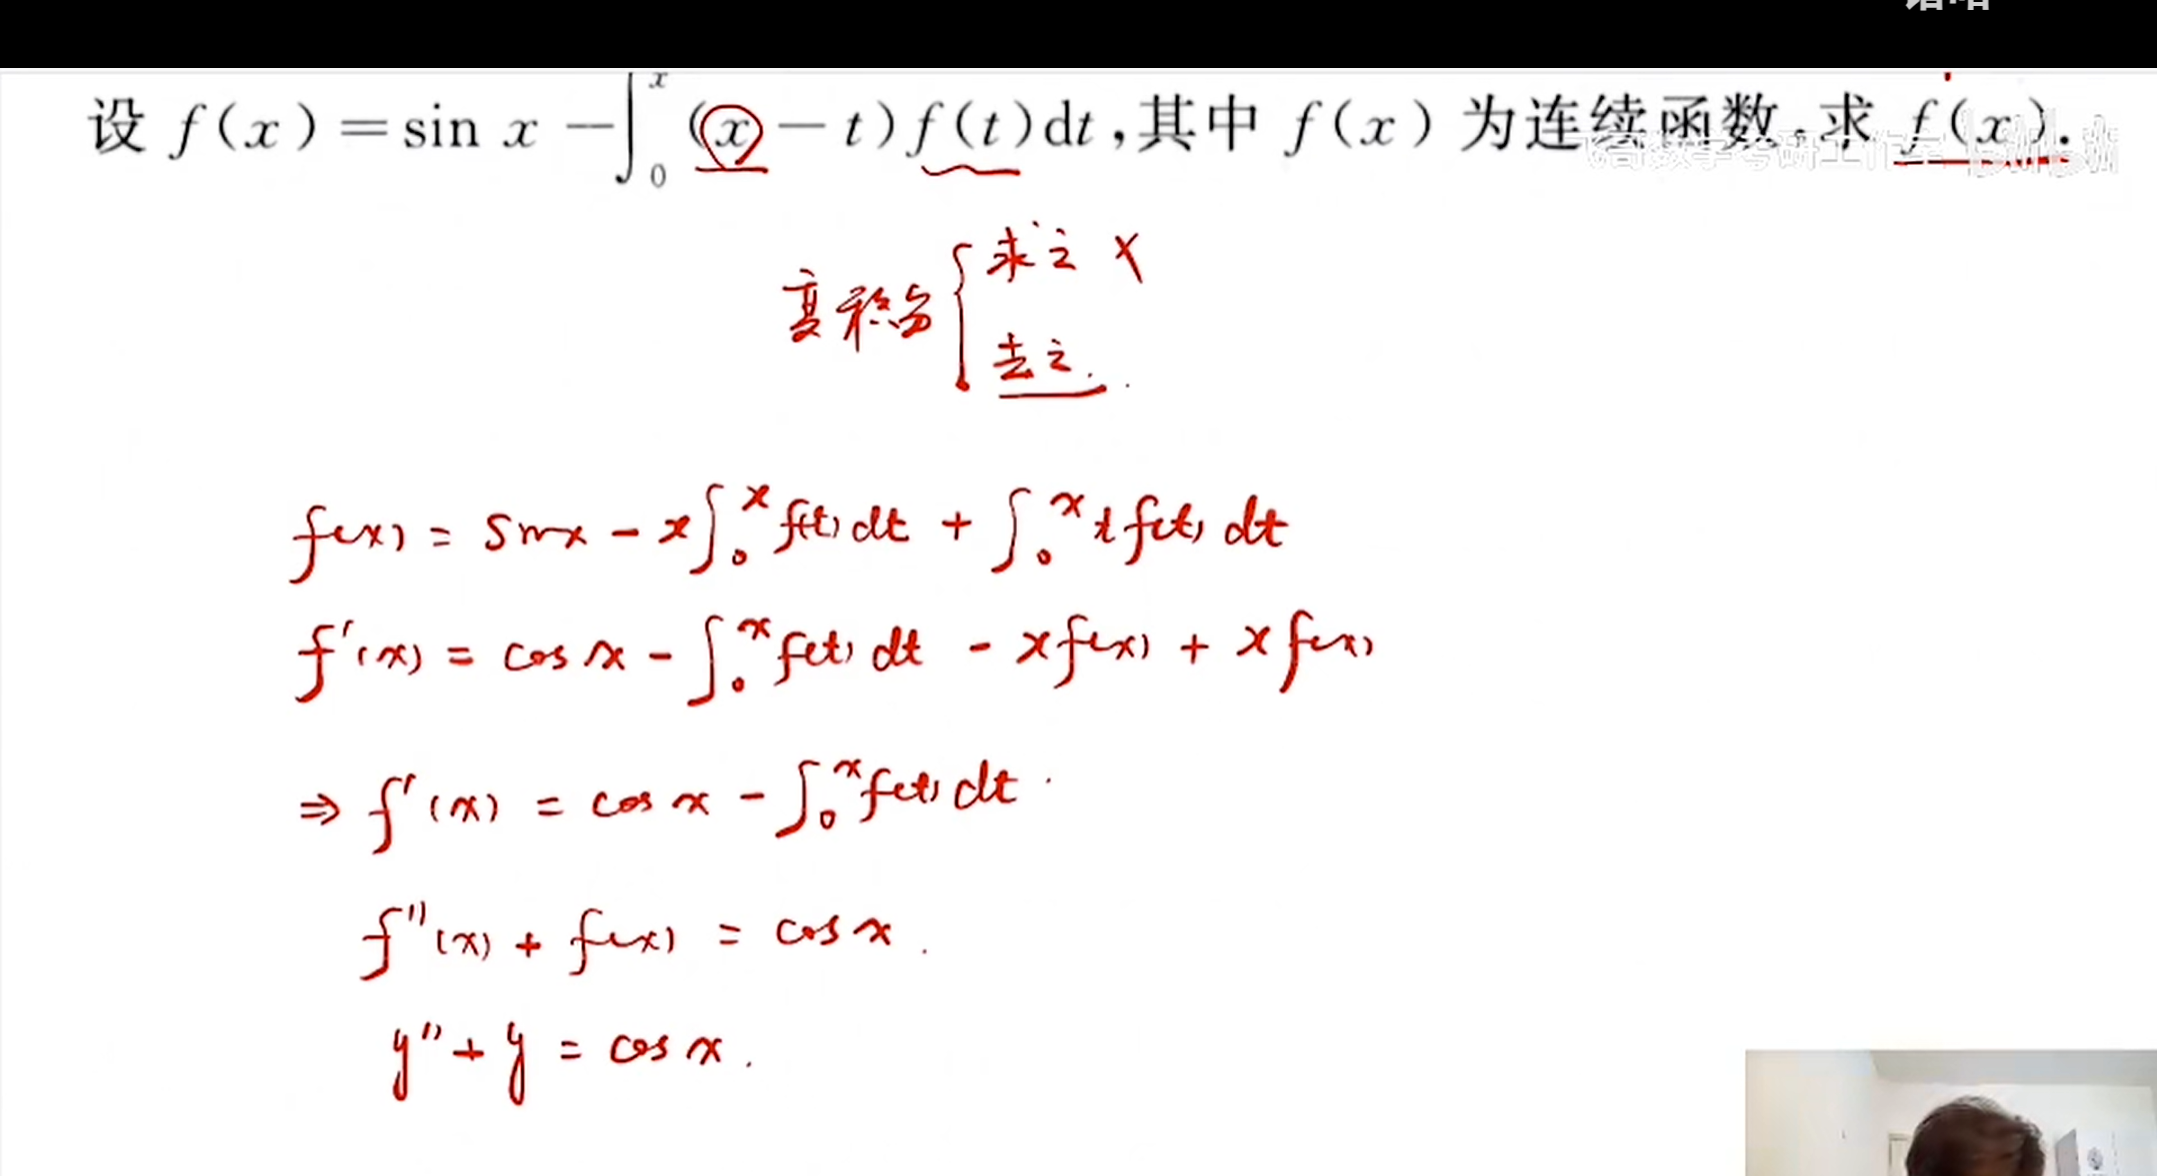 设 f(x)=sin x－∫₀ˣ(x－t)f(t)dt,其中 f(x) 为连续函数,求 f(x).
变积分 { 求之 ×
去之.
f(x) = sinx - x∫₀ˣ f(t) dt + ∫₀ˣ t f(t) dt
f'(x) = cos x - ∫₀ˣ f(t) dt - x f(x) + x f(x)
⇒ f'(x) = cos x - ∫₀ˣ f(t) dt.
f''(x) + f(x) = cos x.
y'' + y = cos x.